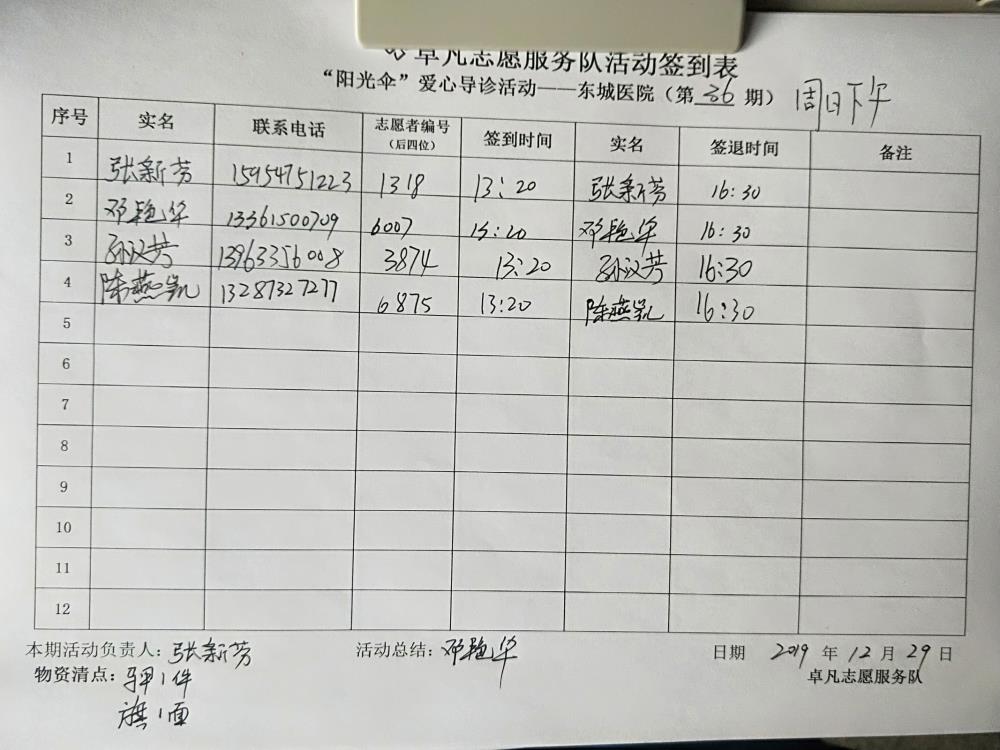 卓凡志愿服务队活动签到表
“阳光伞”爱心导诊活动——东城医院（第 36 期） 周日下午
序号 实名 联系电话 志愿者编号（后四位） 签到时间 实名 签退时间 备注
1 张新芳 15954751223 1318 13:20 张新芳 16:30
2 邓艳华 13361500709 6007 13:20 邓艳华 16:30
3 孙汉芳 13963356008 3874 13:20 孙汉芳 16:30
4 陈燕凯 13287327277 6875 13:20 陈燕凯 16:30
5
6
7
8
9
10
11
12
本期活动负责人：张新芳 活动总结：邓艳华 日期 2019 年 12 月 29 日
物资清点：马甲1件 卓凡志愿服务队
旗1面